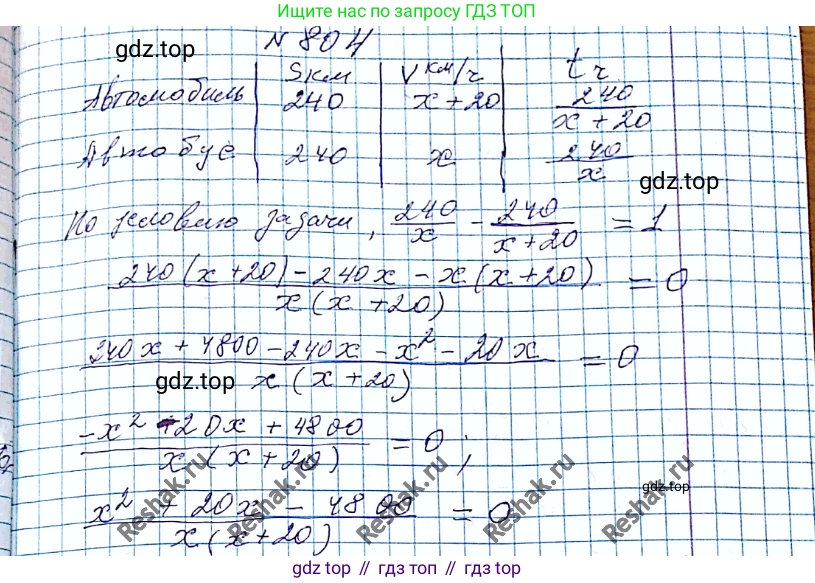 Ищите нас по запросу ГДЗ ТОП
N 804
gdz.top
S км V км/ч t ч
Автомобиль 240 x + 20 240/(x + 20)
Автобус 240 x 240/x
gdz.top
По условию задачи, 240/x - 240/(x + 20) = 1
(240(x + 20) - 240x - x(x + 20))/(x(x + 20)) = 0
(240x + 4800 - 240x - x² - 20x)/(x(x + 20)) = 0
gdz.top
(-x² - 20x + 4800)/(x(x + 20)) = 0;
gdz.top
(x² + 20x - 4800)/(x(x + 20)) = 0
Reshak.ru
Reshak.ru
Reshak.ru
Reshak.ru
gdz.top // гдз.топ // gdz.top